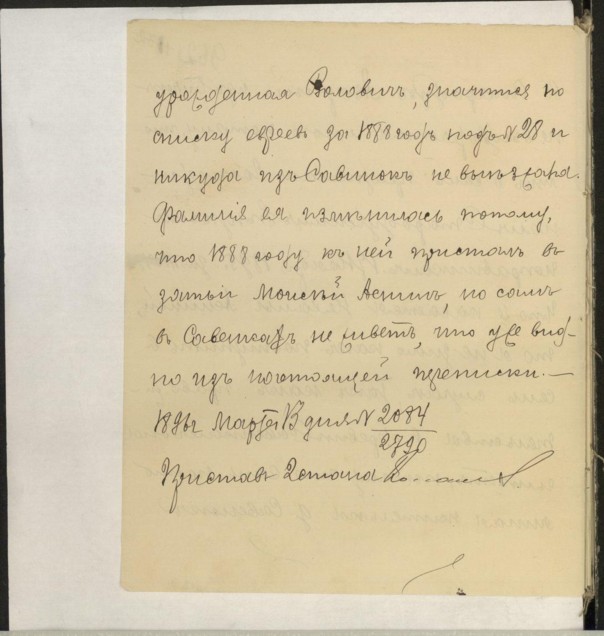 урожденная Волович, значится по
списку евреев за 1888 годъ подъ № 28 и
никуда изъ Савинокъ не выезжала.
Фамилія ея изменилась потому,
что 1888 году къ ней присталъ въ
зятьи Моисей, но самъ
въ не живетъ, что уже вид-
но изъ настоящей переписки.—
Марта 13 дня № 2084
2790
Приставъ 2 стана